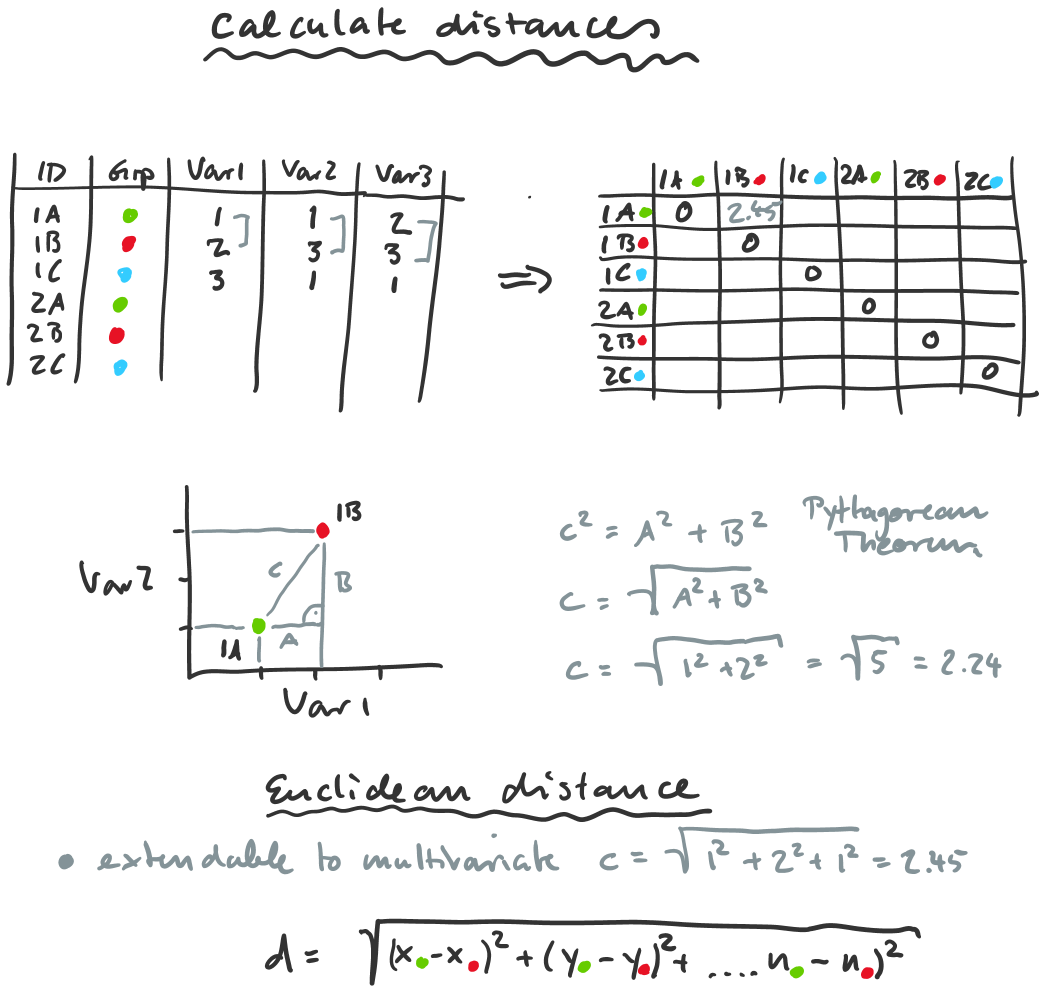 Calculate distances
ID Grp Var1 Var2 Var3
1A 1 1 2
1B 2 3 3
1C 3 1 1
2A
2B
2C
⇒
1A 1B 1C 2A 2B 2C
1A 0 2.45
1B 0
1C 0
2A 0
2B 0
2C 0
Var2
1B
C
B
1A
A
Var1
c² = A² + B² Pythagorean Theorem
c = √A² + B²
c = √1² + 2² = √5 = 2.24
Euclidean distance
• extendable to multivariate c = √1² + 2² + 1² = 2.45
d = √(x - x)² + (y - y)² + .... n - n)²